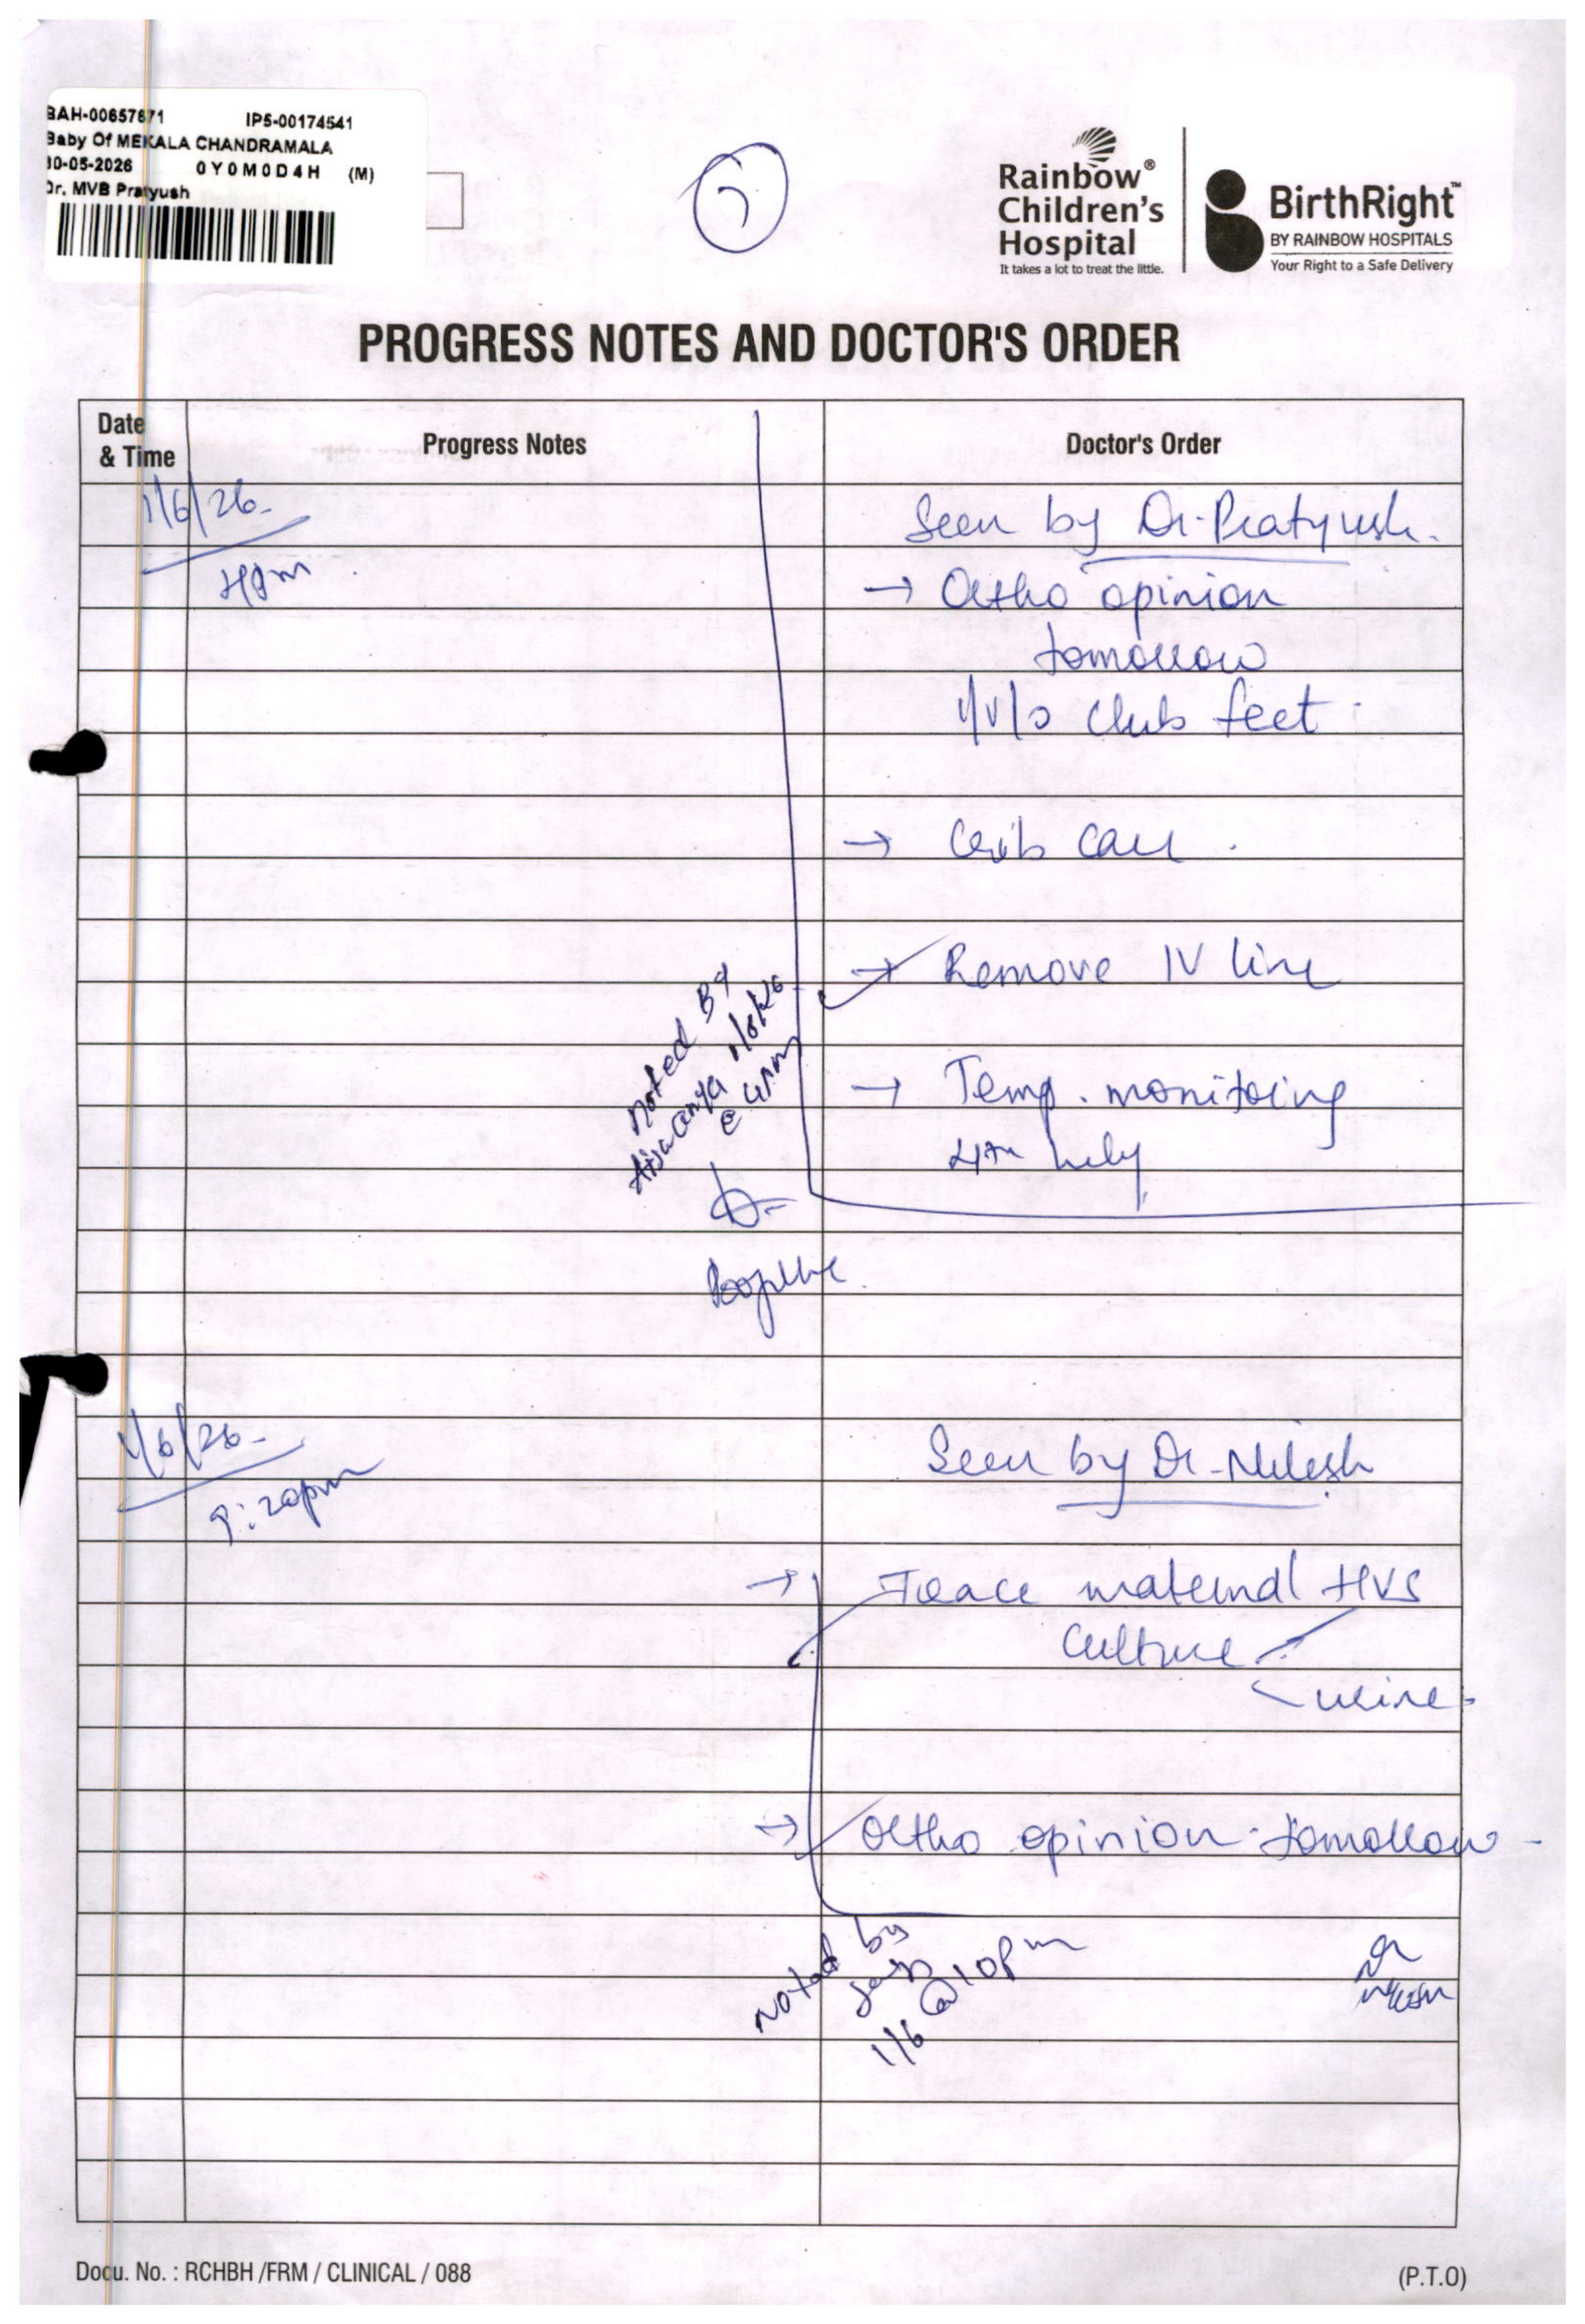 BAH-00657871 IP5-00174541
Baby Of MEKALA CHANDRAMALA
30-05-2026 0Y0M0D4H (M)
Dr. MVB Pratyush
Rainbow®
Children's
Hospital
It takes a lot to treat the little.
BirthRight™
BY RAINBOW HOSPITALS
Your Right to a Safe Delivery
PROGRESS NOTES AND DOCTOR'S ORDER
Date
& Time
Progress Notes
Doctor's Order
1/6/26
4pm
Seen by Dr. Pratyush.
→ Ortho opinion
tomorrow
i/v/o club feet
→ Crib care
→ Remove IV line
→ Temp. monitoring
4th hrly
Noted By
1/6/26
@ 4pm
1/6/26
9:20pm
Seen by Dr. Nilesh
→ Trace maternal HVS
culture
urine
→ Ortho opinion tomorrow
Noted by
1/6 @ 10pm
Dr
Nilesh
Docu. No. : RCHBH /FRM / CLINICAL / 088
(P.T.O)